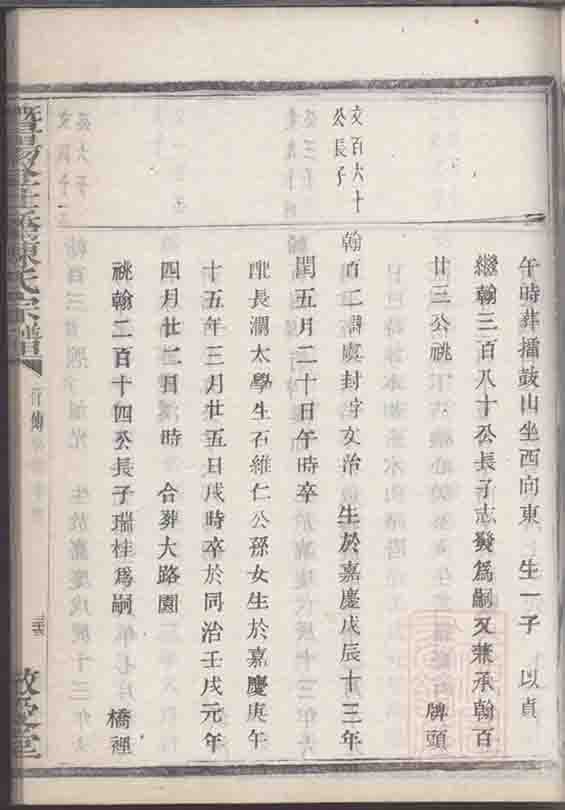 午時葬擂鼓山坐西向東 生一子 以貞
繼翰三百八十公長子志發為嗣又兼承翰百
廿三公祧 牌頭
文百六十
公長子
翰百二 諱虞封字文治 生於嘉慶戊辰十三年
閏五月二十日午時卒
配長瀾太學生石維仁公孫女生於嘉慶庚午
十五年三月廿五日戌時卒於同治壬戌元年
四月廿二日 時 合葬大路園
祧翰二百十四公長子瑞桂為嗣 橋裡
陳氏宗譜
行傳